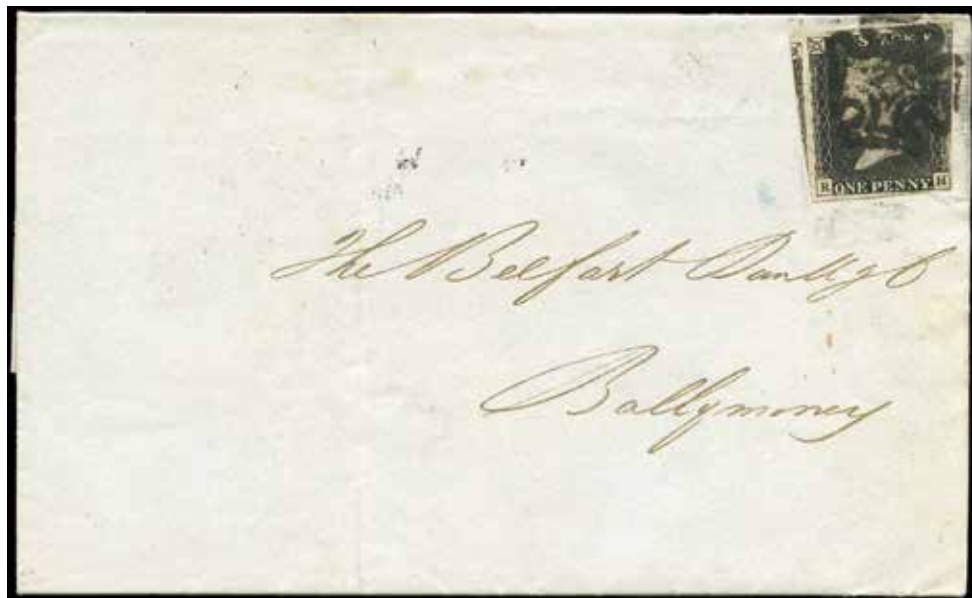 R ONE PENNY H
The Belfast
Ballymoney